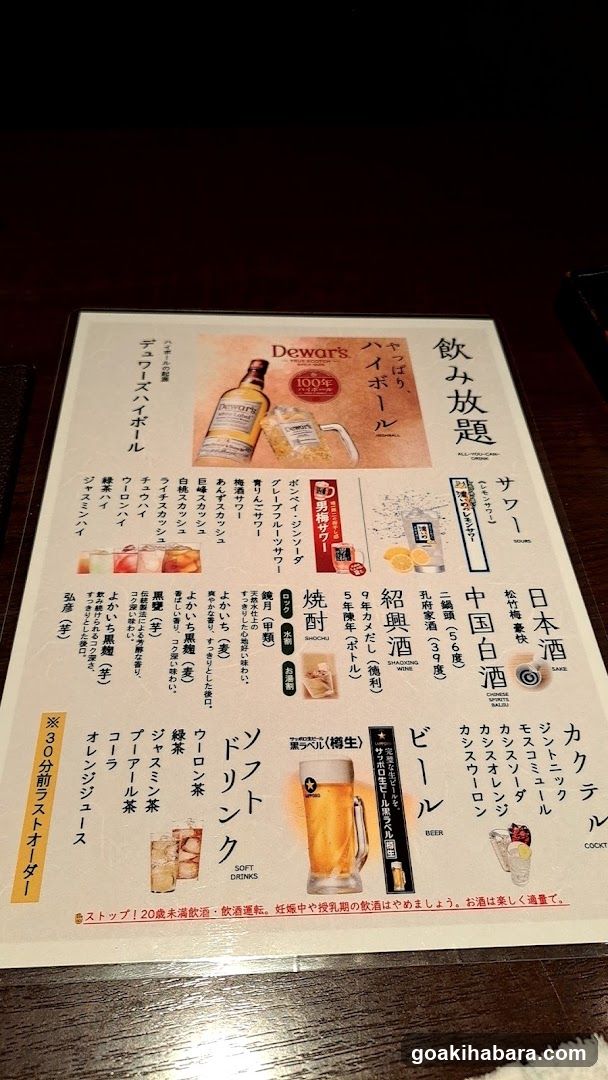 飲み放題
ALL-YOU-CAN-DRINK
やっぱり、
ハイボール
HIGHBALL
Dewar's
TRUE SCOTCH
100年
ハイボール
Dewar's
Dewar's
ハイボールの起源
デュワーズハイボール
サワー
SOURS
〈レモンサワー〉
濃いめのレモンサワー
濃いめ
男梅サワー
ボンベイ・ジンソーダ
グレープフルーツサワー
青りんごサワー
梅酒サワー
あんずスカッシュ
巨峰スカッシュ
白桃スカッシュ
ライチスカッシュ
チュウハイ
ウーロンハイ
緑茶ハイ
ジャスミンハイ
日本酒
SAKE
松竹梅 豪快
中国白酒
CHINESE SPIRITS BAIJIU
二鍋頭（56度）
孔府家酒（39度）
紹興酒
SHAOXING WINE
9年カメだし（徳利）
5年陳年（ボトル）
焼酎
SHOCHU
ロック
水割
お湯割
鏡月（甲類）
天然水仕上の
すっきりした心地好い味わい。
よかいち（麦）
爽やかな香り、すっきりとした後口。
よかいち黒麹（麦）
香ばしい香り、コク深い味わい。
黒甕（芋）
伝統製法による芳醇な香り、
コク深い味わい。
よかいち黒麹（芋）
飲み続けられるコク深さ、
すっきりとした後口。
弘彦（芋）
カクテル
COCKT
ジントニック
モスコミュール
カシスソーダ
カシスオレンジ
カシスウーロン
ビール
BEER
完璧な生ビールを。
サッポロ生ビール黒ラベル
樽生
サッポロ生ビール
黒ラベル〈樽生〉
SAPPORO
ソフトドリンク
SOFT DRINKS
ウーロン茶
緑茶
ジャスミン茶
プーアール茶
コーラ
オレンジジュース
※30分前ラストオーダー
ストップ！20歳未満飲酒・飲酒運転。妊娠中や授乳期の飲酒はやめましょう。お酒は楽しく適量で。
goakihabara.com